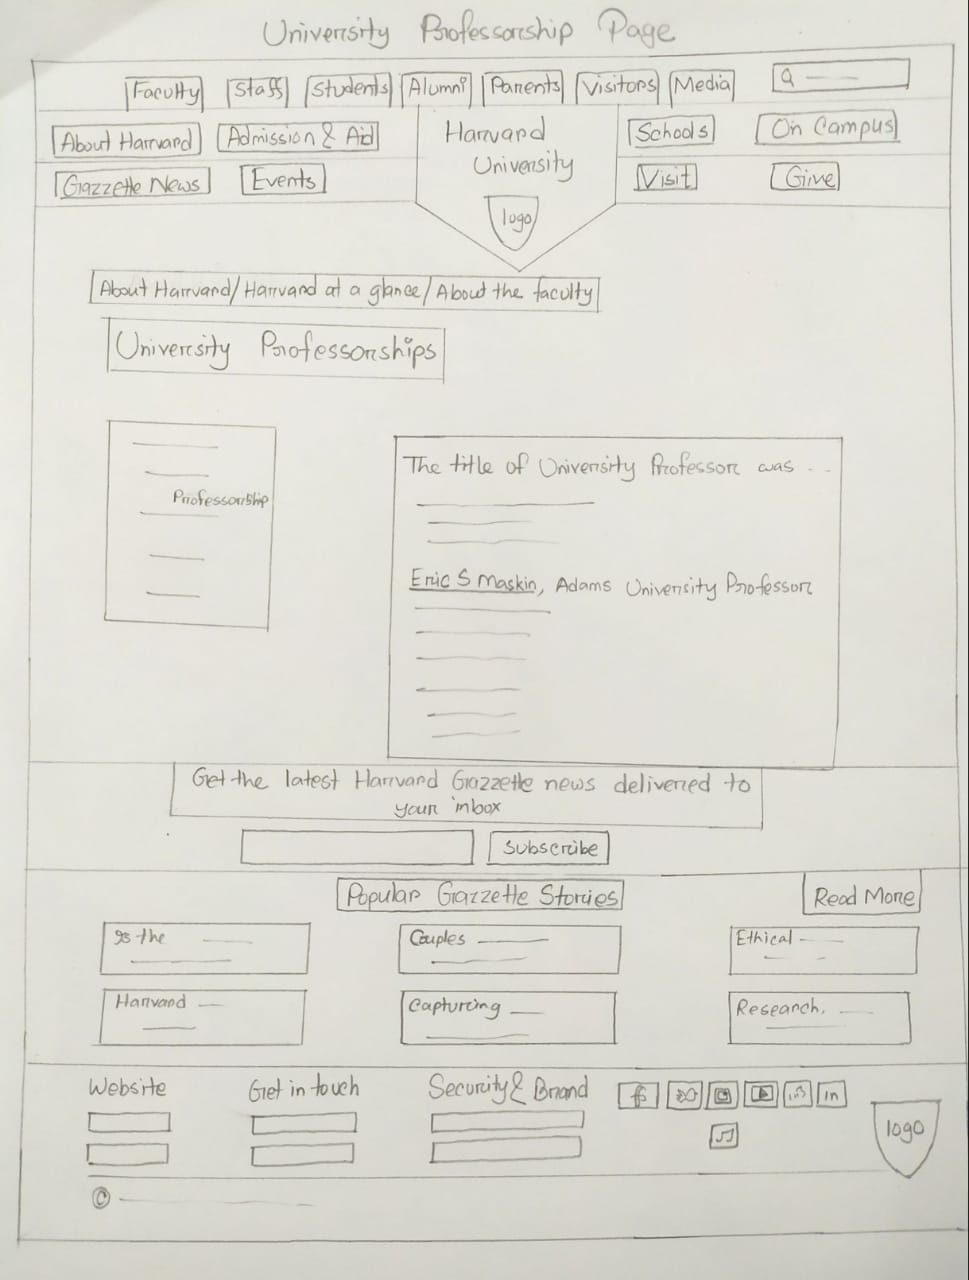 University Professorship Page
Faculty Staff Students Alumni Parents Visitors Media
About Harvard Admission & Aid Harvard University Schools On Campus
Gazzette News Events Visit Give
logo
About Harvard/Harvard at a glance/About the faculty
University Professorships
Professorship
The title of University Professor was ..
Eric S Maskin, Adams University Professor
Get the latest Harvard Gazzette news delivered to
your inbox
Subscribe
Popular Gazzette Stories Read More
Is the Couples Ethical
Harvard Capturing Research.
Website Get in touch Security & Brand f in
logo
©